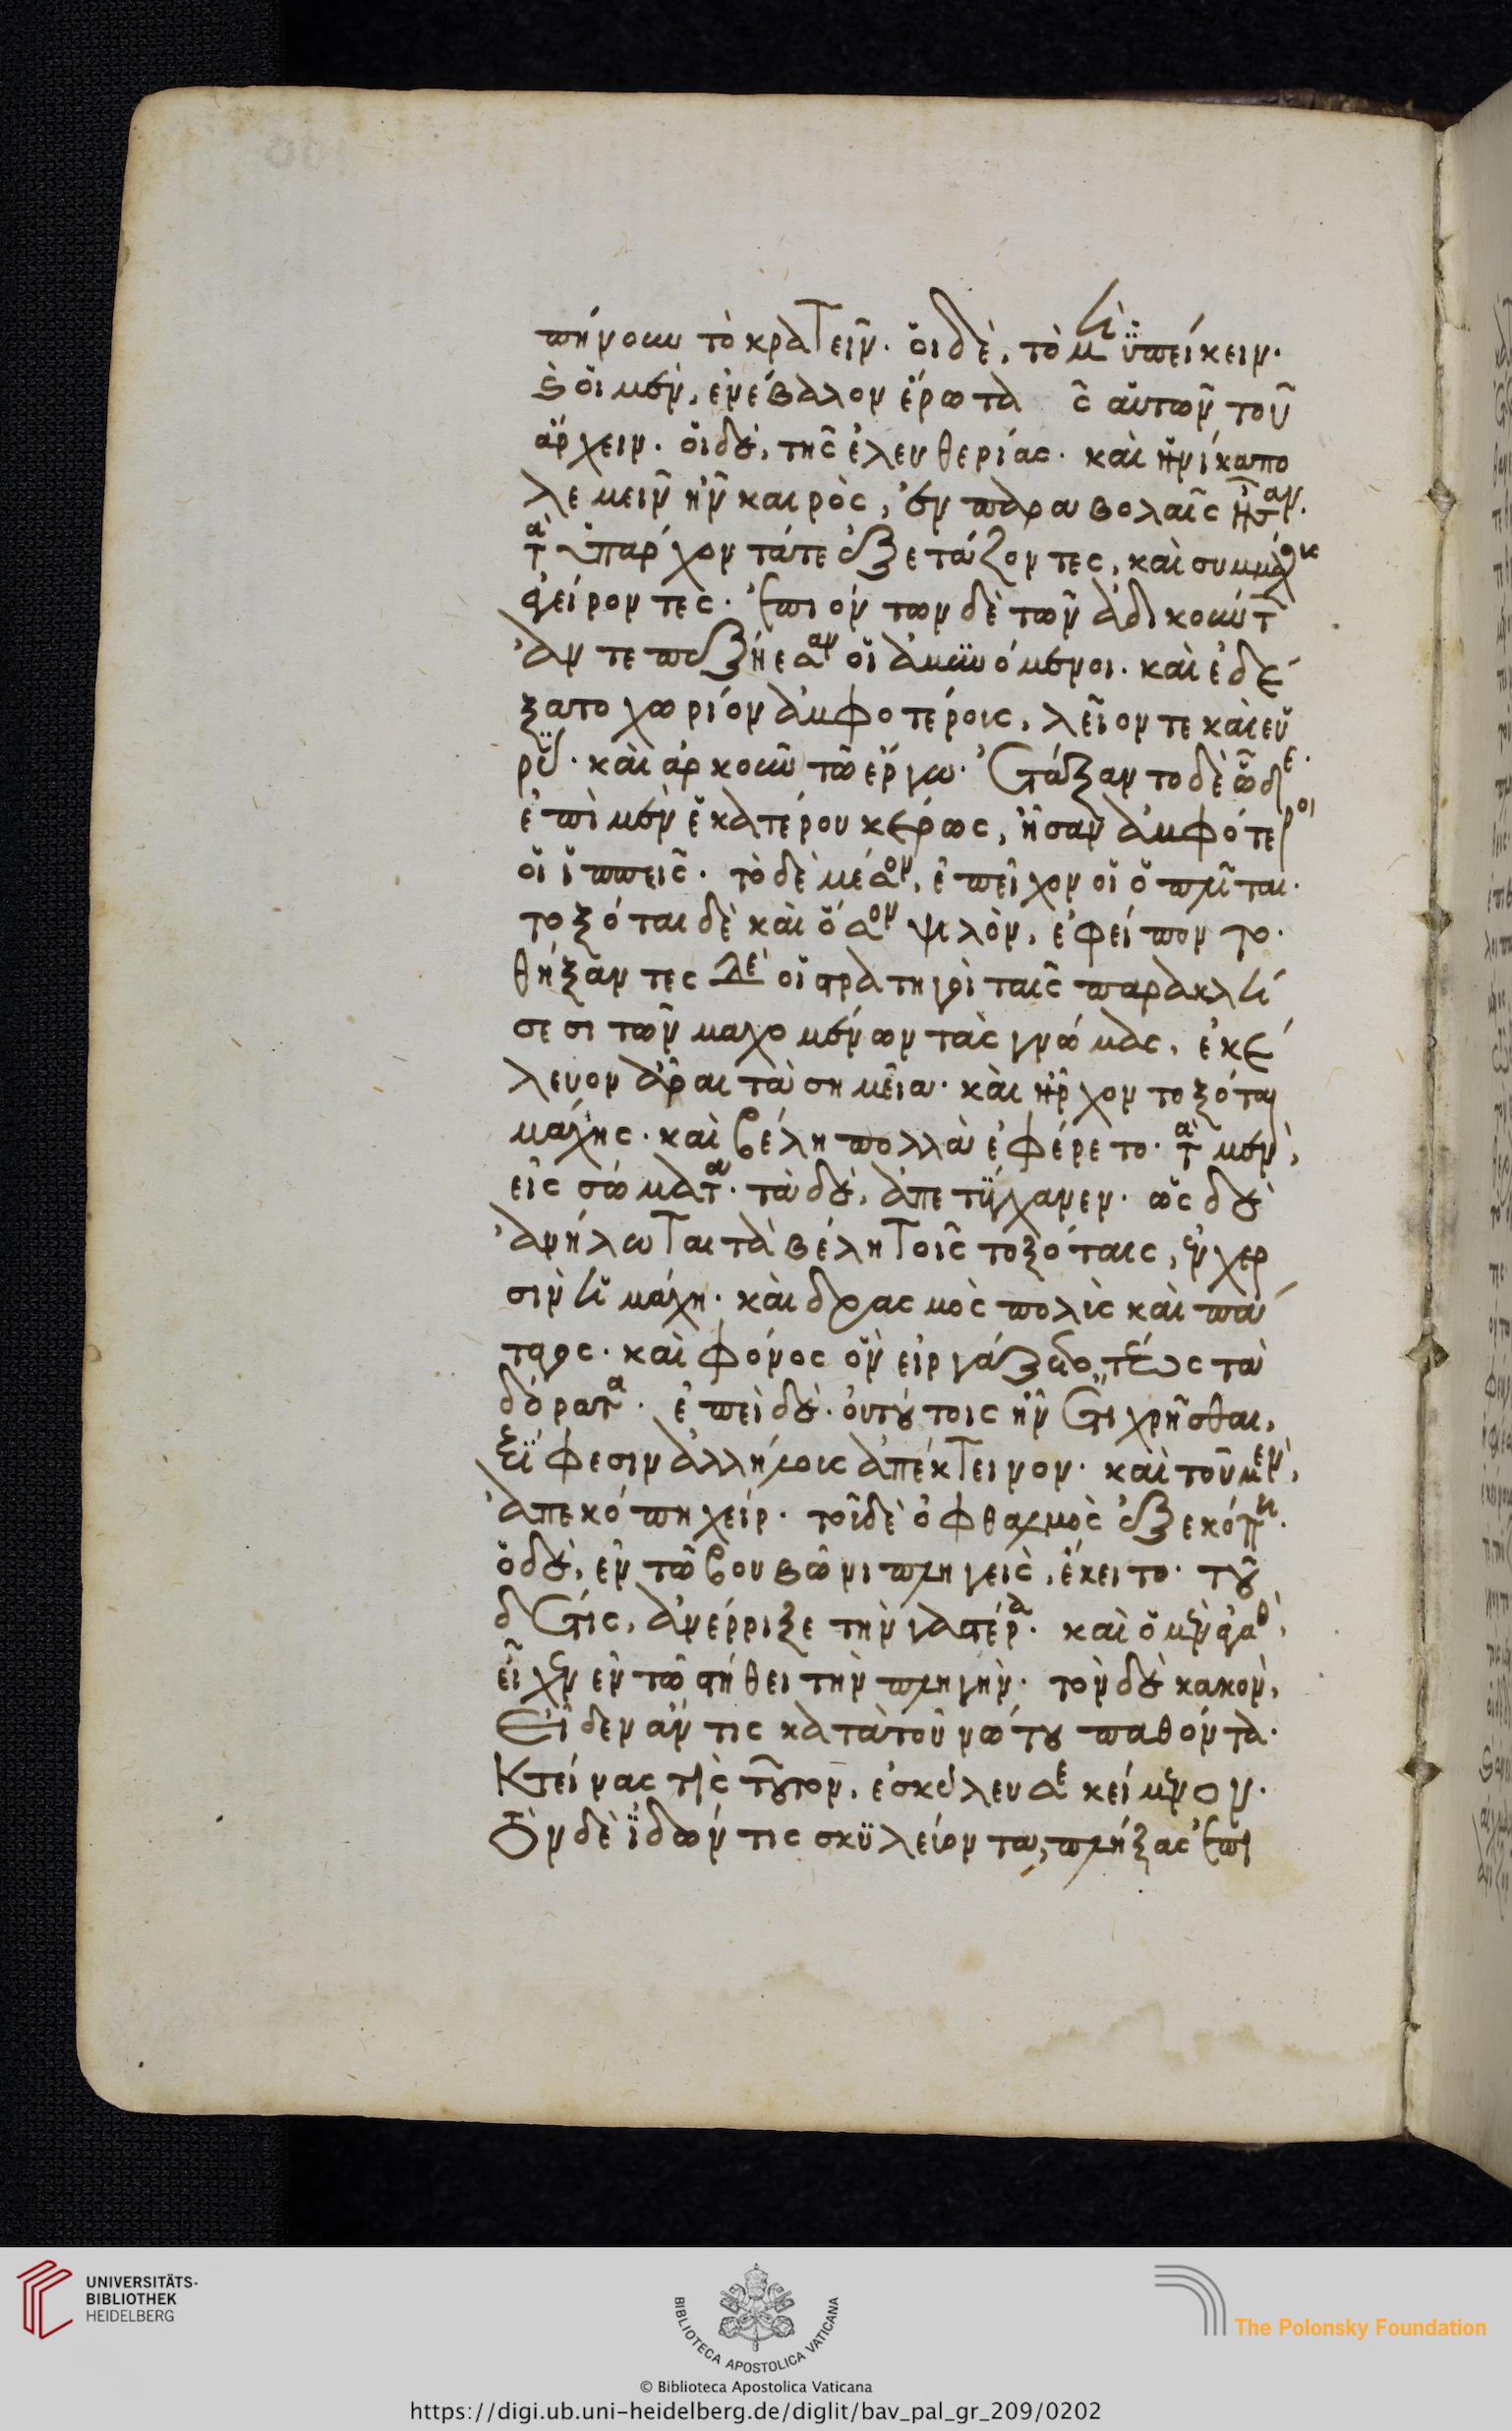 πήνουν τὸ κρατεῖν· οἱ δὲ, τὸ μὴ ὑπείκειν·
καὶ οἱ μὲν, ἐνέβαλον ἔρωτα ς αὑτῶν τοῦ
ἄρχειν· οἱ δὲ, τῆς ἐλευθερίας· καὶ ἡνίκα πο
λεμεῖν ἦν καιρὸς, ἐν παραβολαῖς ἦσαν·
τὰ ὑπάρχοντά τε ἐξετάζοντες, καὶ συμμάχους
ἀγείροντες· ἐπιόντων δὲ τῶν ἀδικούντων
ἀντεπεξήεσαν οἱ ἀμυνόμενοι· καὶ ἐδέ
ξατο χωρίον ἀμφοτέροις, λεῖόν τε καὶ εὐ
ρύ· καὶ ἀρκοῦν τῶ ἔργω· ἐτάξαντο δὲ ὧδε·
ἐπὶ μὲν ἑκατέρου κέρως, ἦσαν ἀμφότεροι
οἱ ἱππεῖς· τὸ δὲ μέσον, ἐπεῖχον οἱ ὁπλῖται·
τοξόται δὲ καὶ ὅσον ψιλὸν, ἐφείποντο·
θήξαντες δὲ οἱ στρατηγοὶ ταῖς παρακλή
σεσι τῶν μαχομένων τὰς γνώμας, ἐκέ
λευον ἆραι τὰ σημεῖα· καὶ ἦρχον τοξόται
μάχης· καὶ βέλη πολλὰ ἐφέρετο· τὰ μὲν,
εἰς σώματα· τὰ δὲ, ἀπετύγχανεν· ὡς δὲ
ἀνήλωται τὰ βέλη τοῖς τοξόταις, ἐν χερ
σὶν ἡ μάχη· καὶ δρασμὸς πολὺς καὶ πά
ταγος· καὶ φόνος ὃν εἰργάζετο, τέως τὰ
δόρατα· ἐπεὶ δὲ· οὐ τούτοις ἦν ἔτι χρῆσθαι,
ξίφεσιν ἀλλήλους ἀπέκτεινον· καὶ τοῦ μὲν,
ἀπεκόπη χείρ· τοῦ δὲ ὀφθαλμὸς ἐξεκόπη·
ὁ δὲ, ἐν τῶ βουβῶνι πληγεὶς, ἔκειτο· τοῦ
δέ τις, ἀνέρρηξε τὴν γαστέρα· καὶ ὁ μὲν ἀγαθὸς,
εἶχεν ἐν τῶ στήθει τὴν πληγὴν· τὸν δὲ κακὸν,
εἶδεν ἄν τις κατὰ τοῦ νώτου παθόντα·
Κτείνας τὶς τοῦτον, ἐσκύλευσε κείμενον·
Ὃν δὲ ἰδών τις σκυλεύοντα, πλήξας ἐπι